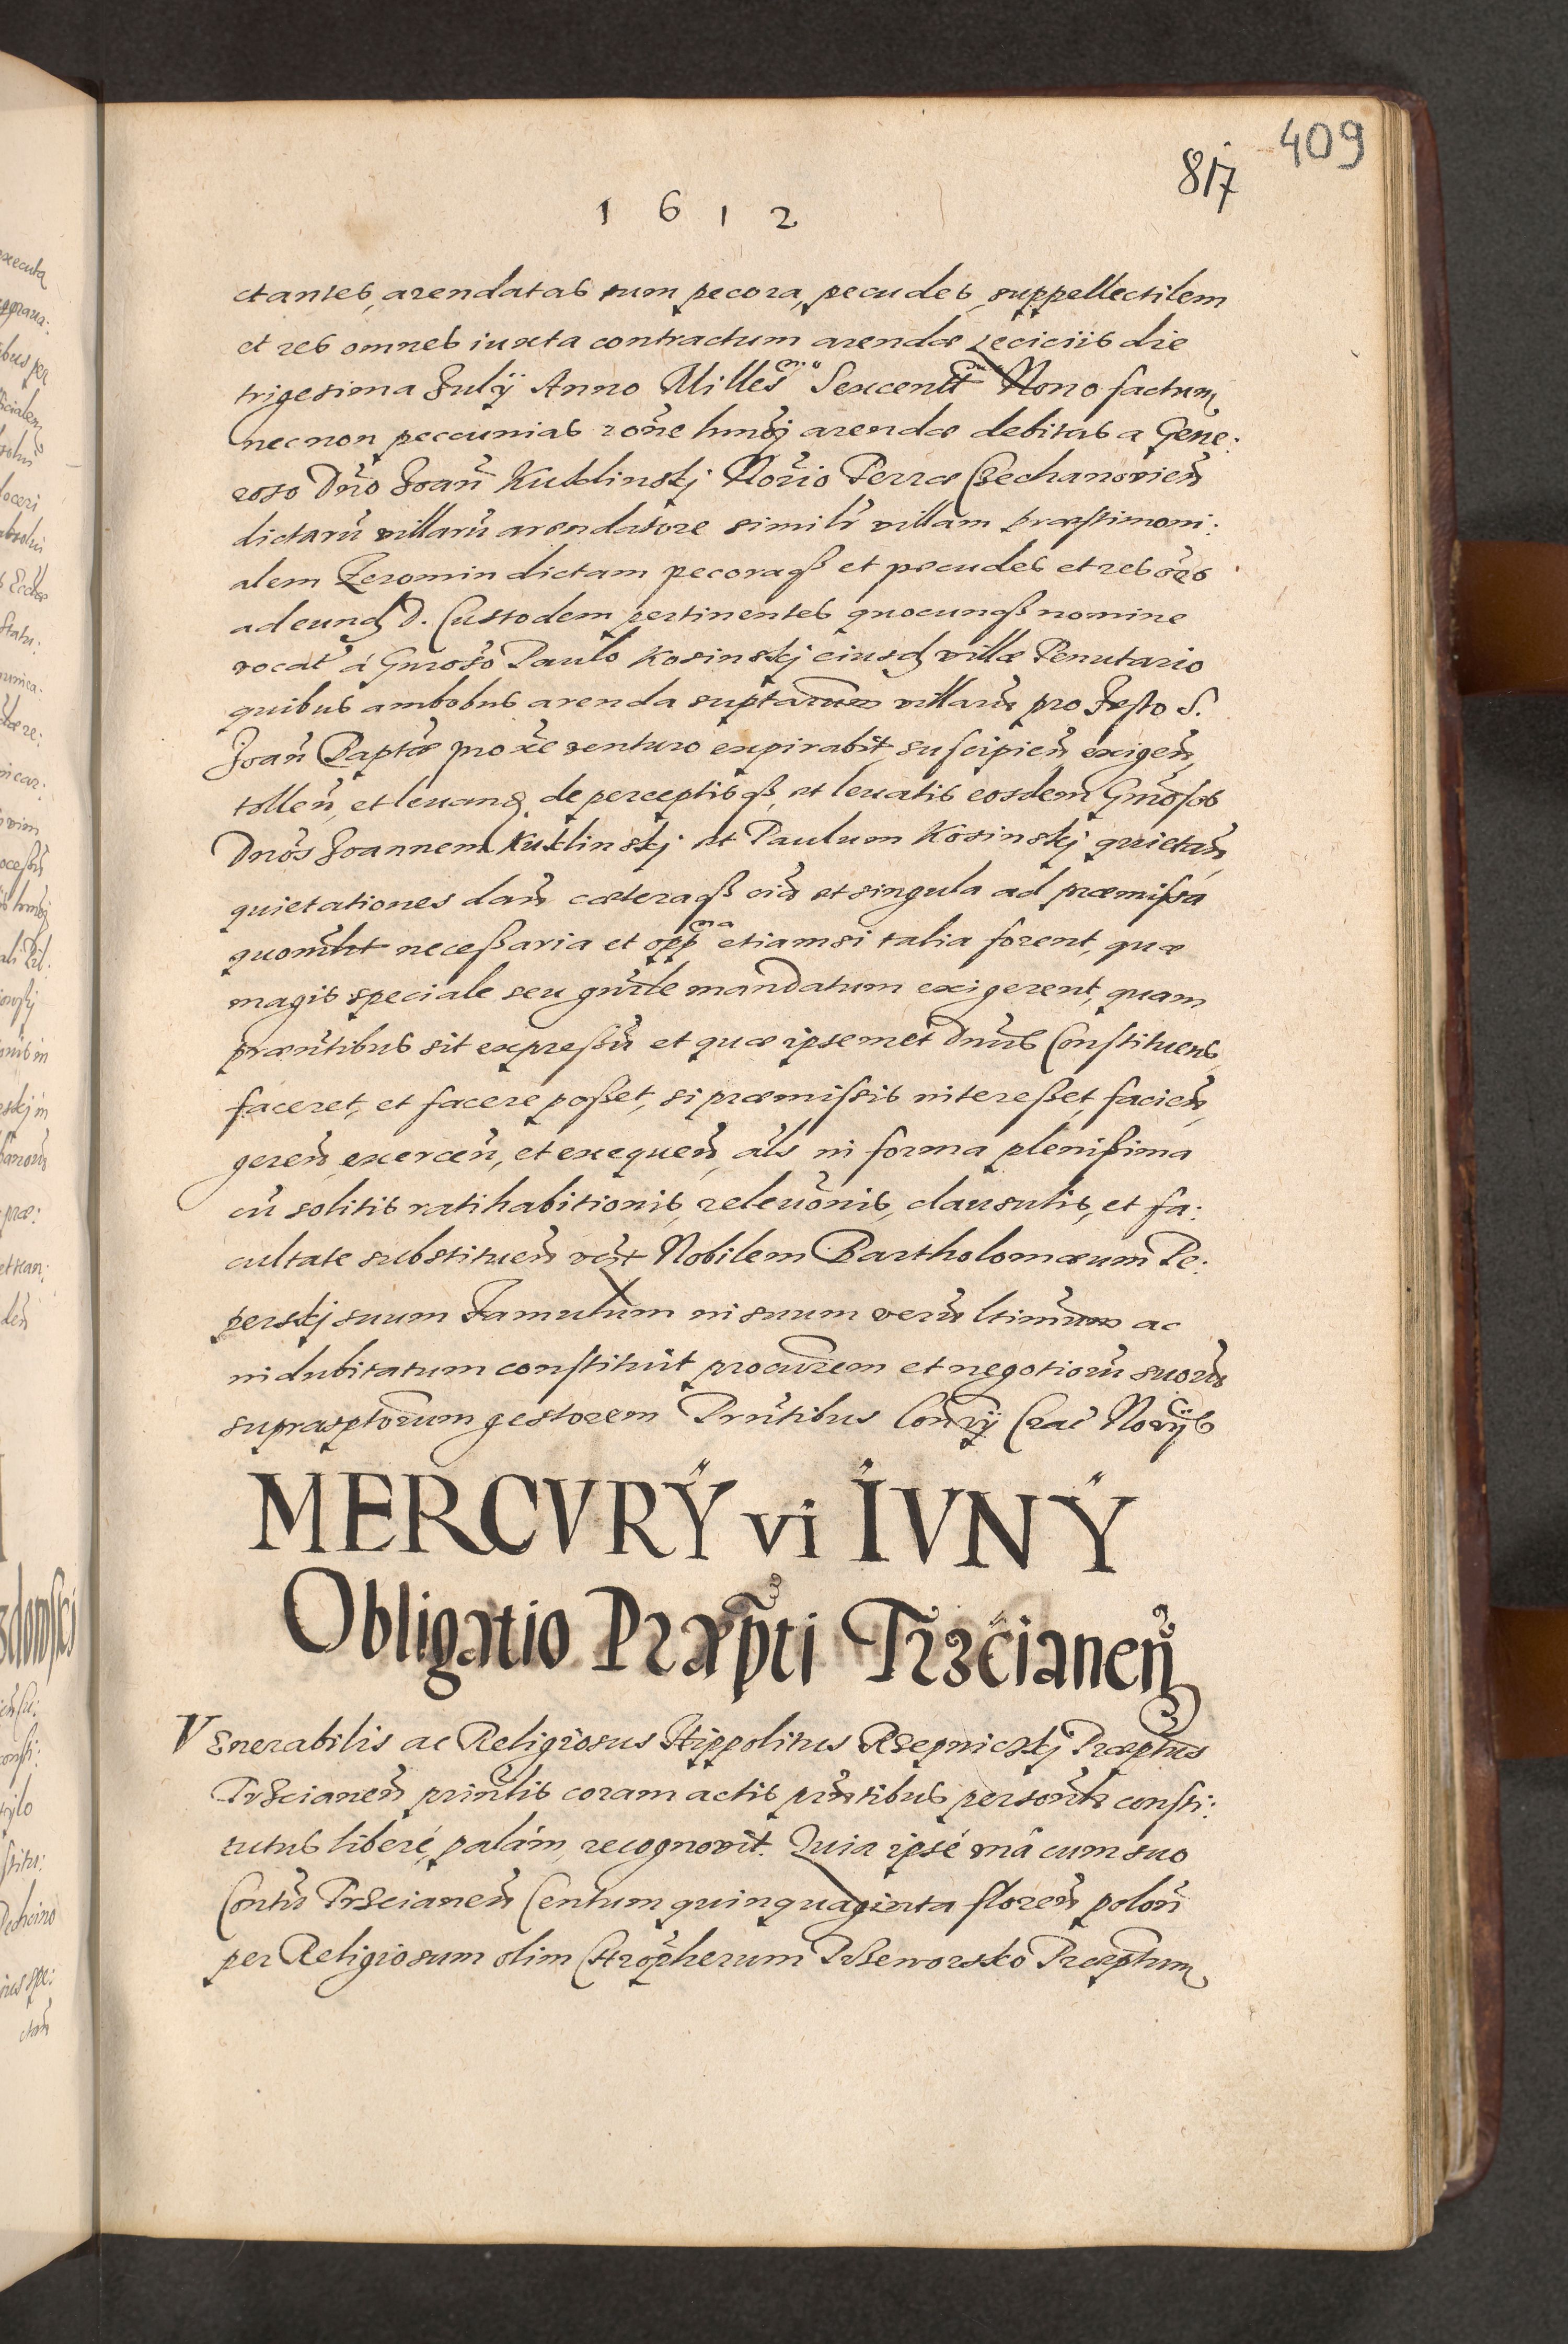 409
817
1612
ctantes, arendatas tum pecora, pecudes, suppellectilem
et res omnes iuxta contractum arendæ die
trigesima Julÿ Anno Milles̃mo Sexcent̃ Nono factum
necnon peccunias rõne hmõj arendæ debitas a Gene:
roso Dño Joañ Kuklinskj Norĩo Terræ Czechanovieñ
dictarũ villarũ arendatore similr̃ villam præstimoni:
alem Zeromin dictam pecoraqꝫ et pecudes et res oẽs
ad eundꝫ D. Custodem pertinentes quocunqꝫ nomine
vocat̃ a Gnroso Paulo Kosinskj eiusdꝫ villæ Tenutario
quibus ambobus arenda villarũ pro Festo S.
Joañ Baptæ proxẽ venturo expirabit, suscipieñ, exigeñ,
tolleñ, et levandꝫ, de perceptisqꝫ, et levatis eosdem Gnrõsos
Dnõs Joannem Kuklinskj et Paulum Kosinskj quietañ
quietationes dañ cæteraqꝫ oĩa et singula ad præmissa
quomlt necessaria et opp̃na etiamsi talia forent, quæ
magis speciale seu gnrãle mandatum exigerent, quam
præñtibus sit expressũ et quæ ipsemet Dnũs Constituens
faceret, et facere posset, si præmissis interesset, facieñ,
gereñ, exerceñ, et exequeñ, als̃ in forma plenissima
cũ solitis ratihabitionis, relevõnis, clausulis, et fa:
cultate substitueñ vdꝫt Nobilem Bartholomæum Pe:
perskj suum Famulum in suum verũ ltimum ac
indubitatum constituit procurem et negotiorũ suorũ
suprasptorum gestorem Prñtibus Con̄rÿ Crac̃ Norÿs
MERCVRŸ vi IVNŸ
Obligatio Præp̃ti Trzcianeñ
Venerabilis ac Religiosus Hippolitus Rzepnickj Præptus
Trzcianeñ prinlis coram actis prñtibus persoñlr consti:
tutus liberé, palám, recognovit. Quia ipsé unâ cum suo
Contũ Trzcianeñ Centum quinquaginta floreñ poloñ
per Religiosum olim Chrõpherum Przeworsko Præptum